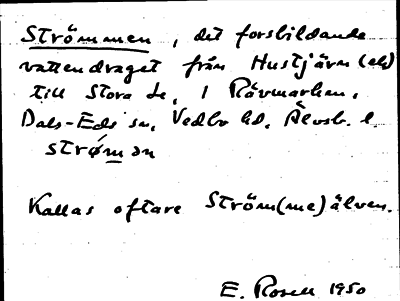 Strömmen, det forsbildande
vattendraget från Hustjärn (ek)
till Stora Le, i Rävmarken.
Dals-Eds sn, Vedbo hd, Älvsb. l.
strø̀mən
Kallas oftare Ström(me)älven.
E. Rosell 1950